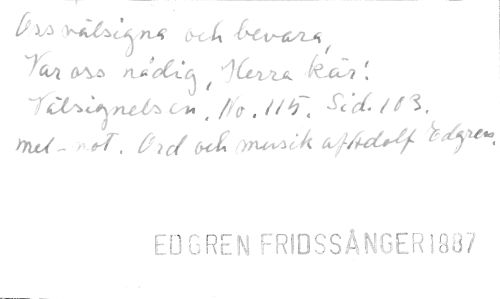 Oss välsigna och bevara,
Var oss nådig, Herra kär!
Välsignelsen. No. 115. Sid. 103.
mel-not. Ord och musik af Adolf Edgren.
EDGREN FRIDSSÅNGER 1887